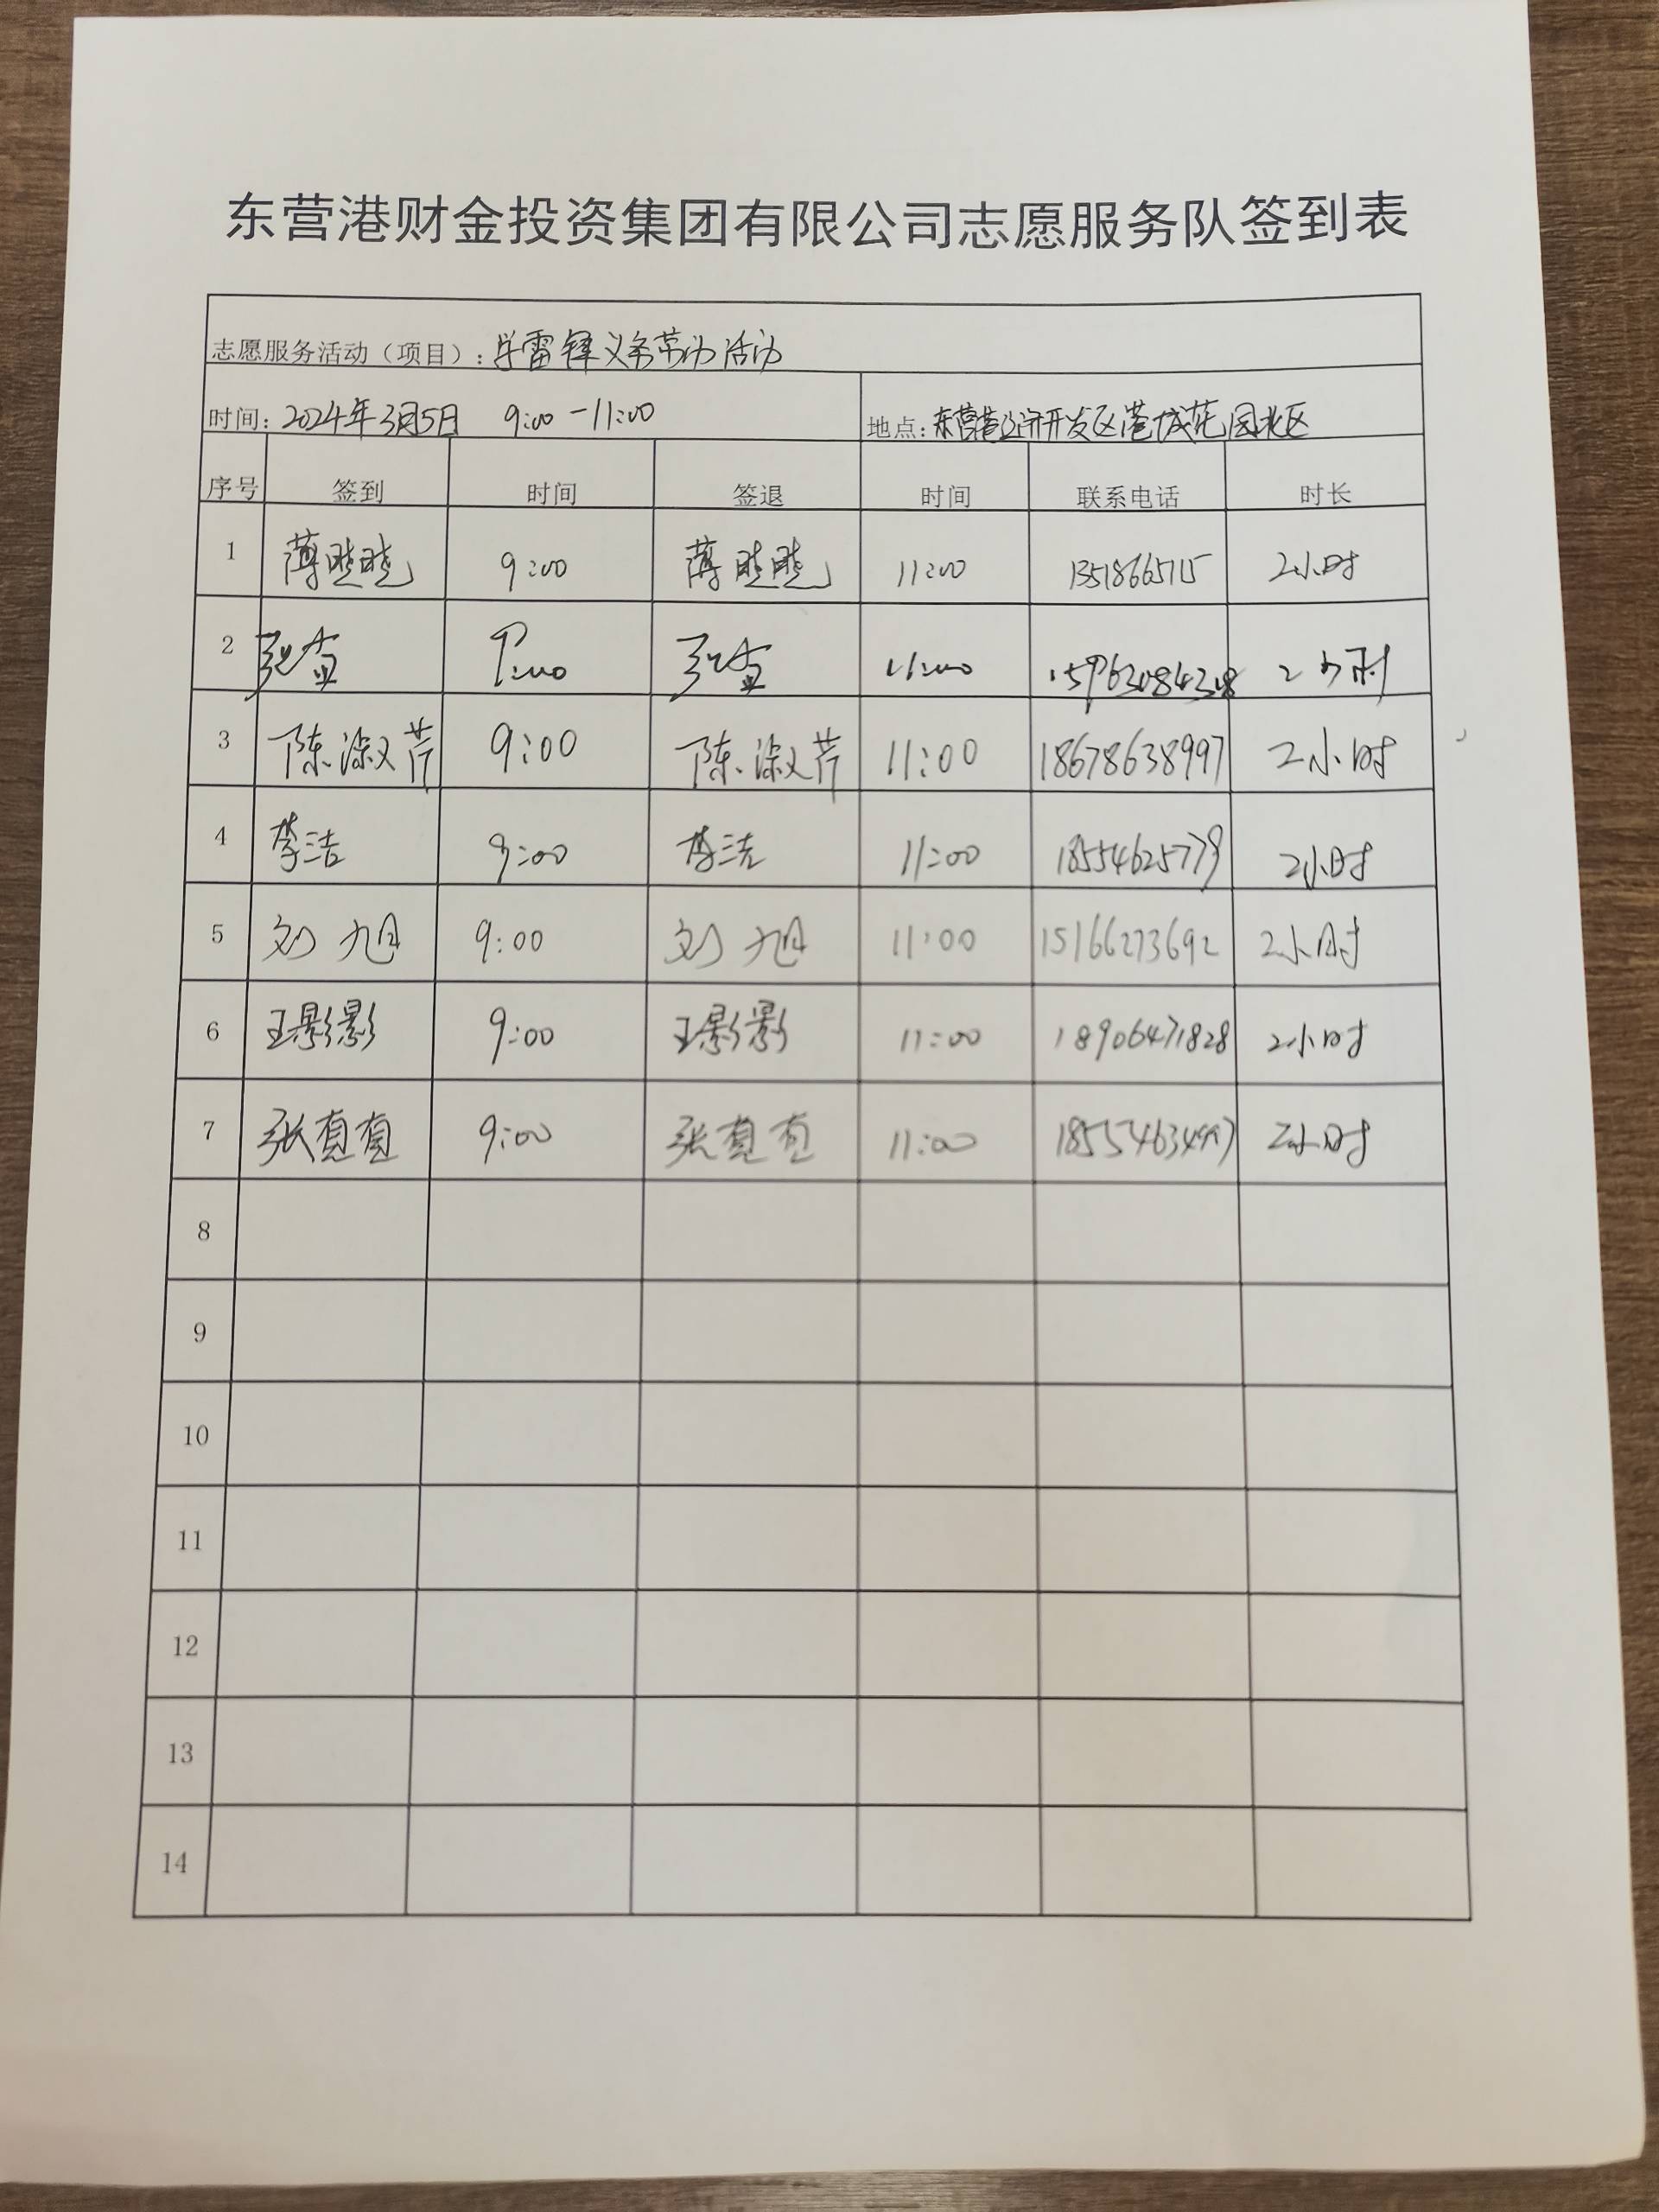 东营港财金投资集团有限公司志愿服务队签到表
志愿服务活动（项目）：学雷锋义务劳动活动
时间：2024年3月5日 9:00-11:00 地点：东营港经济开发区港城花园北区
序号 签到 时间 签退 时间 联系电话 时长
1 薄晓晓 9:00 薄晓晓 11:00 2小时
2 9:00 11:00 2小时
3 陈淑芹 9:00 陈淑芹 11:00 18678638997 2小时
4 李洁 9:00 李洁 11:00 18554625779 2小时
5 刘旭 9:00 刘旭 11:00 15166273692 2小时
6 王影影 9:00 王影影 11:00 18906471828 2小时
7 张真真 9:00 张真真 11:00 2小时
8
9
10
11
12
13
14